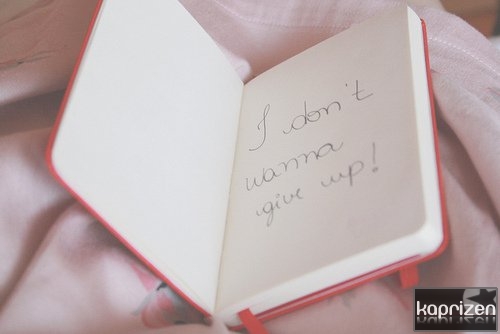 I don't
wanna
give up!
kaprizen